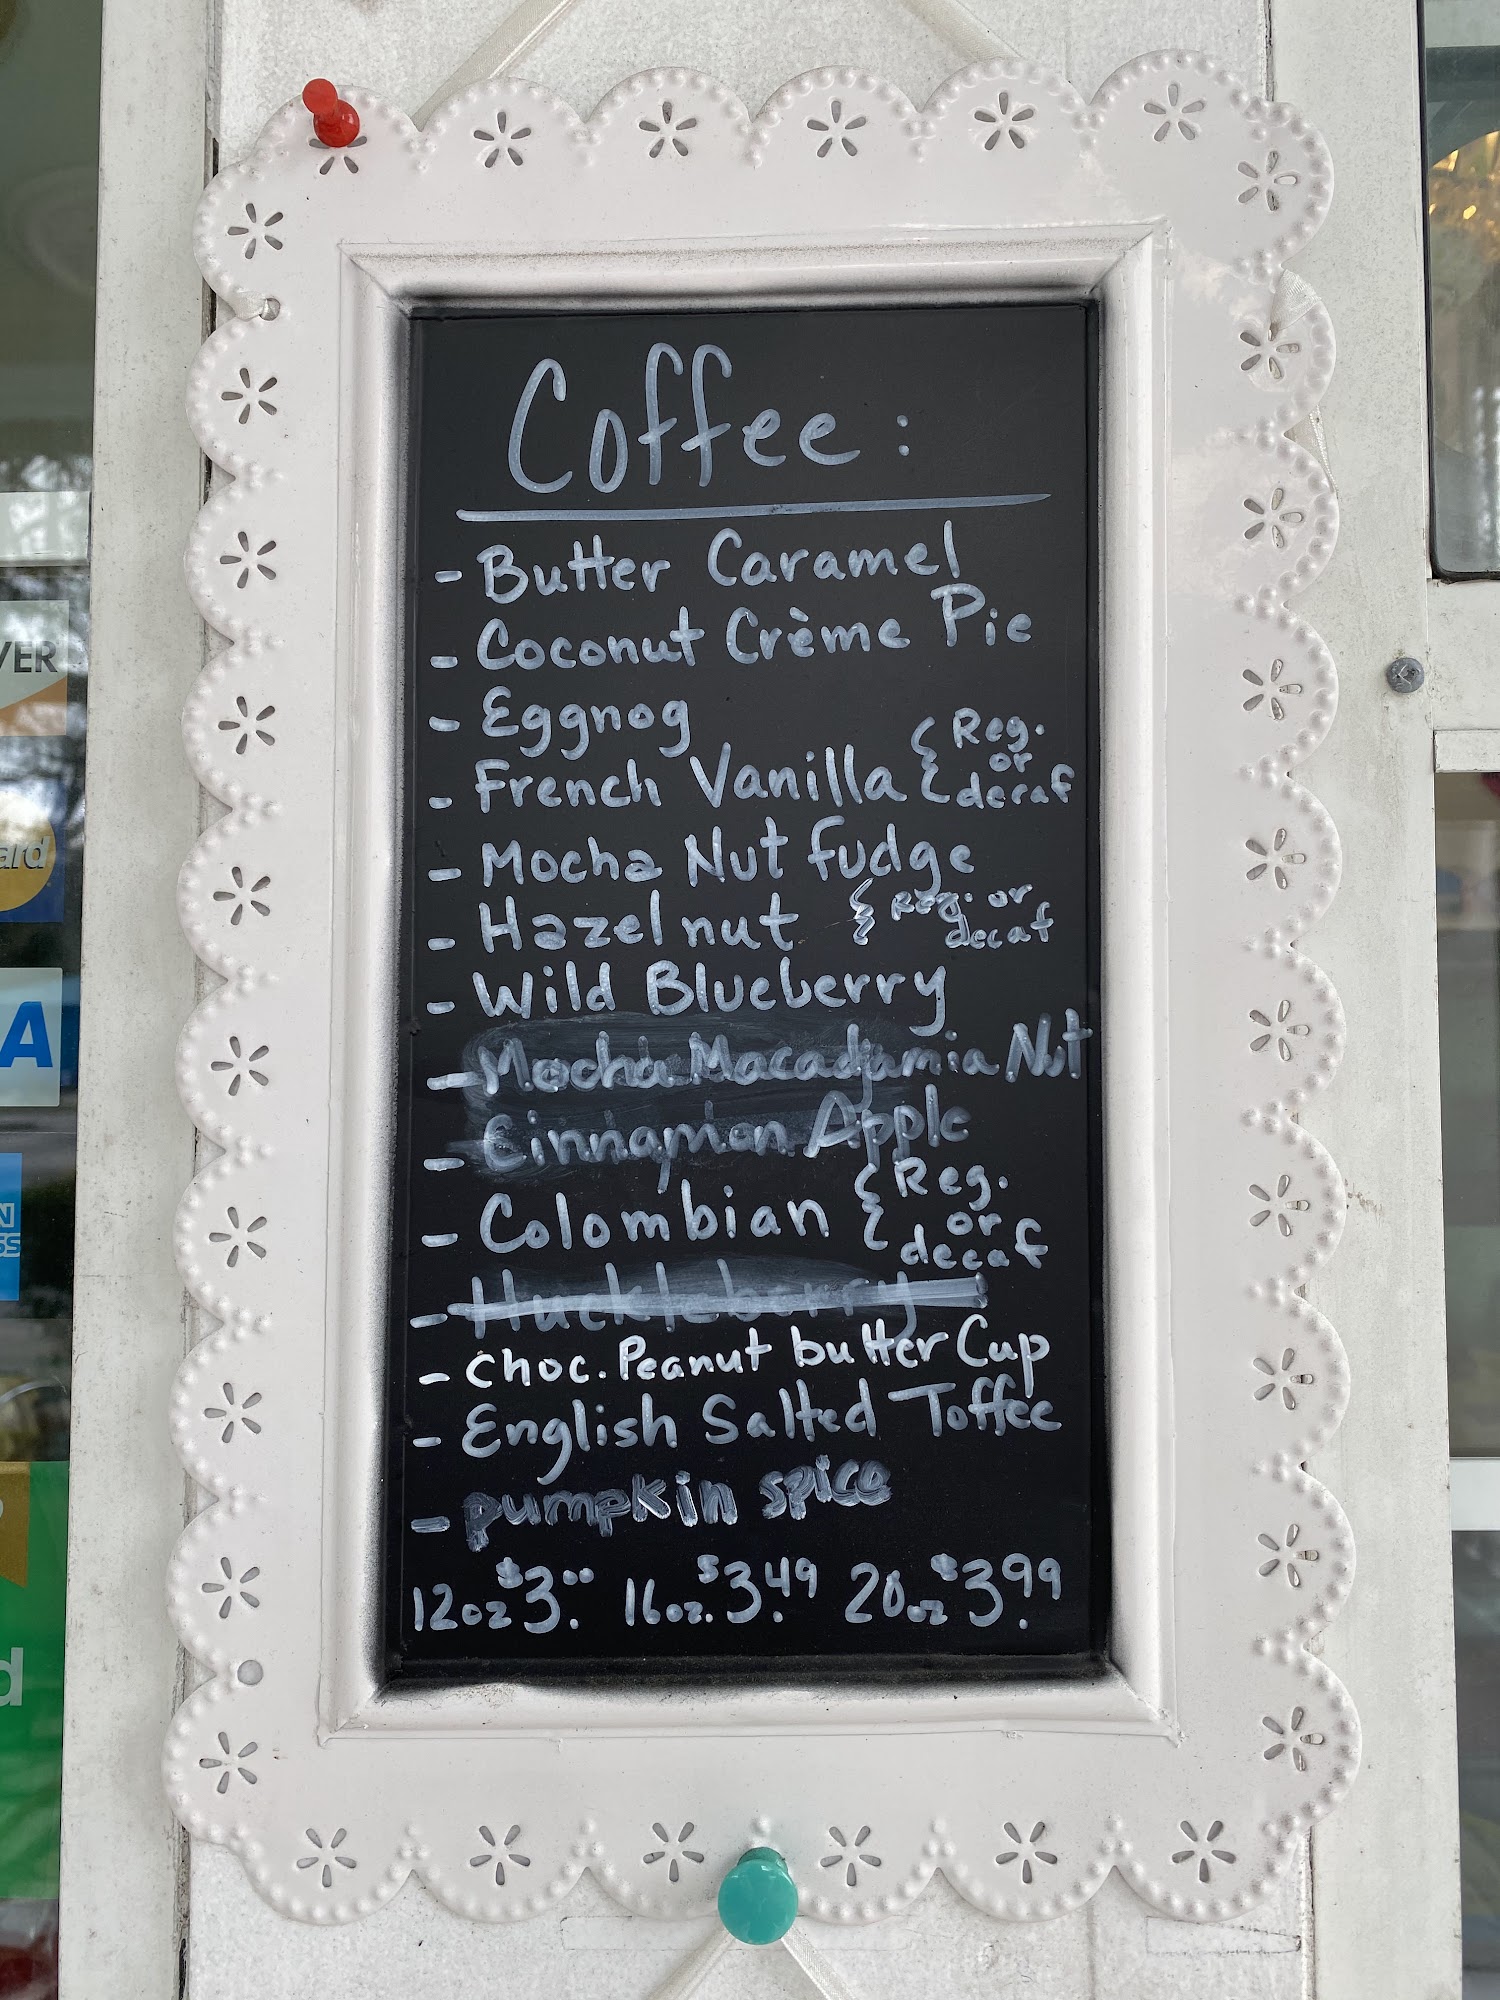 Coffee:
- Butter Caramel
- Coconut Crème Pie
- Eggnog
- French Vanilla { Reg. or decaf
- Mocha Nut fudge
- Hazelnut { Reg. or decaf
- Wild Blueberry
- Mocha Macadamia Nut
- Cinnamon Apple
- Colombian { Reg. or decaf
- Huckleberry
- choc. Peanut butter Cup
- English Salted Toffee
- pumpkin spice
12oz $3.00 16oz. $3.49 20oz $3.99
VER
ard
A
N
SS
d